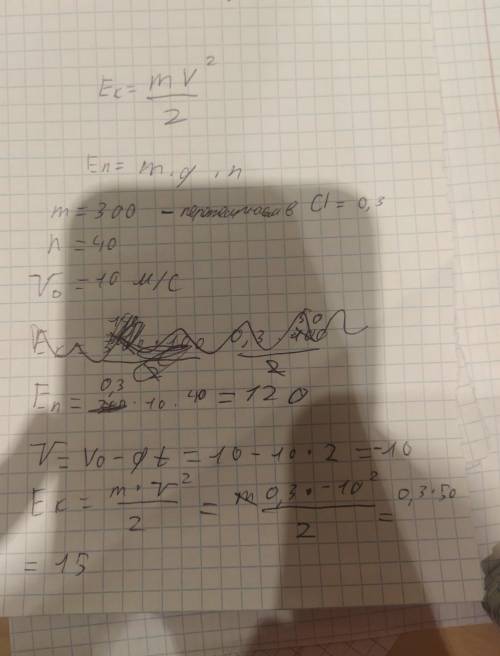 Eк = mv²/2
Eп = m · g · h
m = 300 – переводим в СИ = 0,3
h = 40
V₀ = 10 м/с
0,3
2 2
Eп = 0,3 · 10 · 40 = 120
V = V₀ - gt = 10 - 10 · 2 = -10
Eк = m · v²/2 = 0,3 · -10²/2 = 0,3 · 50
= 15